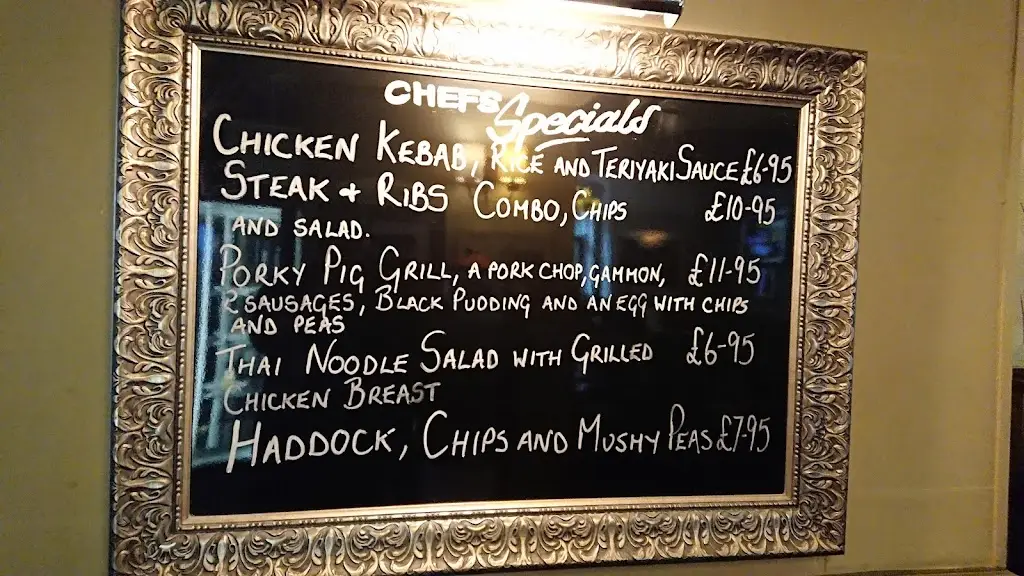 CHEFS Specials
CHICKEN KEBAB, RICE AND TERIYAKI SAUCE £6-95
STEAK + RIBS COMBO, CHIPS £10-95
AND SALAD.
PORKY PIG GRILL, A PORK CHOP, GAMMON, £11-95
2 SAUSAGES, BLACK PUDDING AND AN EGG WITH CHIPS
AND PEAS
THAI NOODLE SALAD WITH GRILLED £6-95
CHICKEN BREAST
HADDOCK, CHIPS AND MUSHY PEAS £7-95